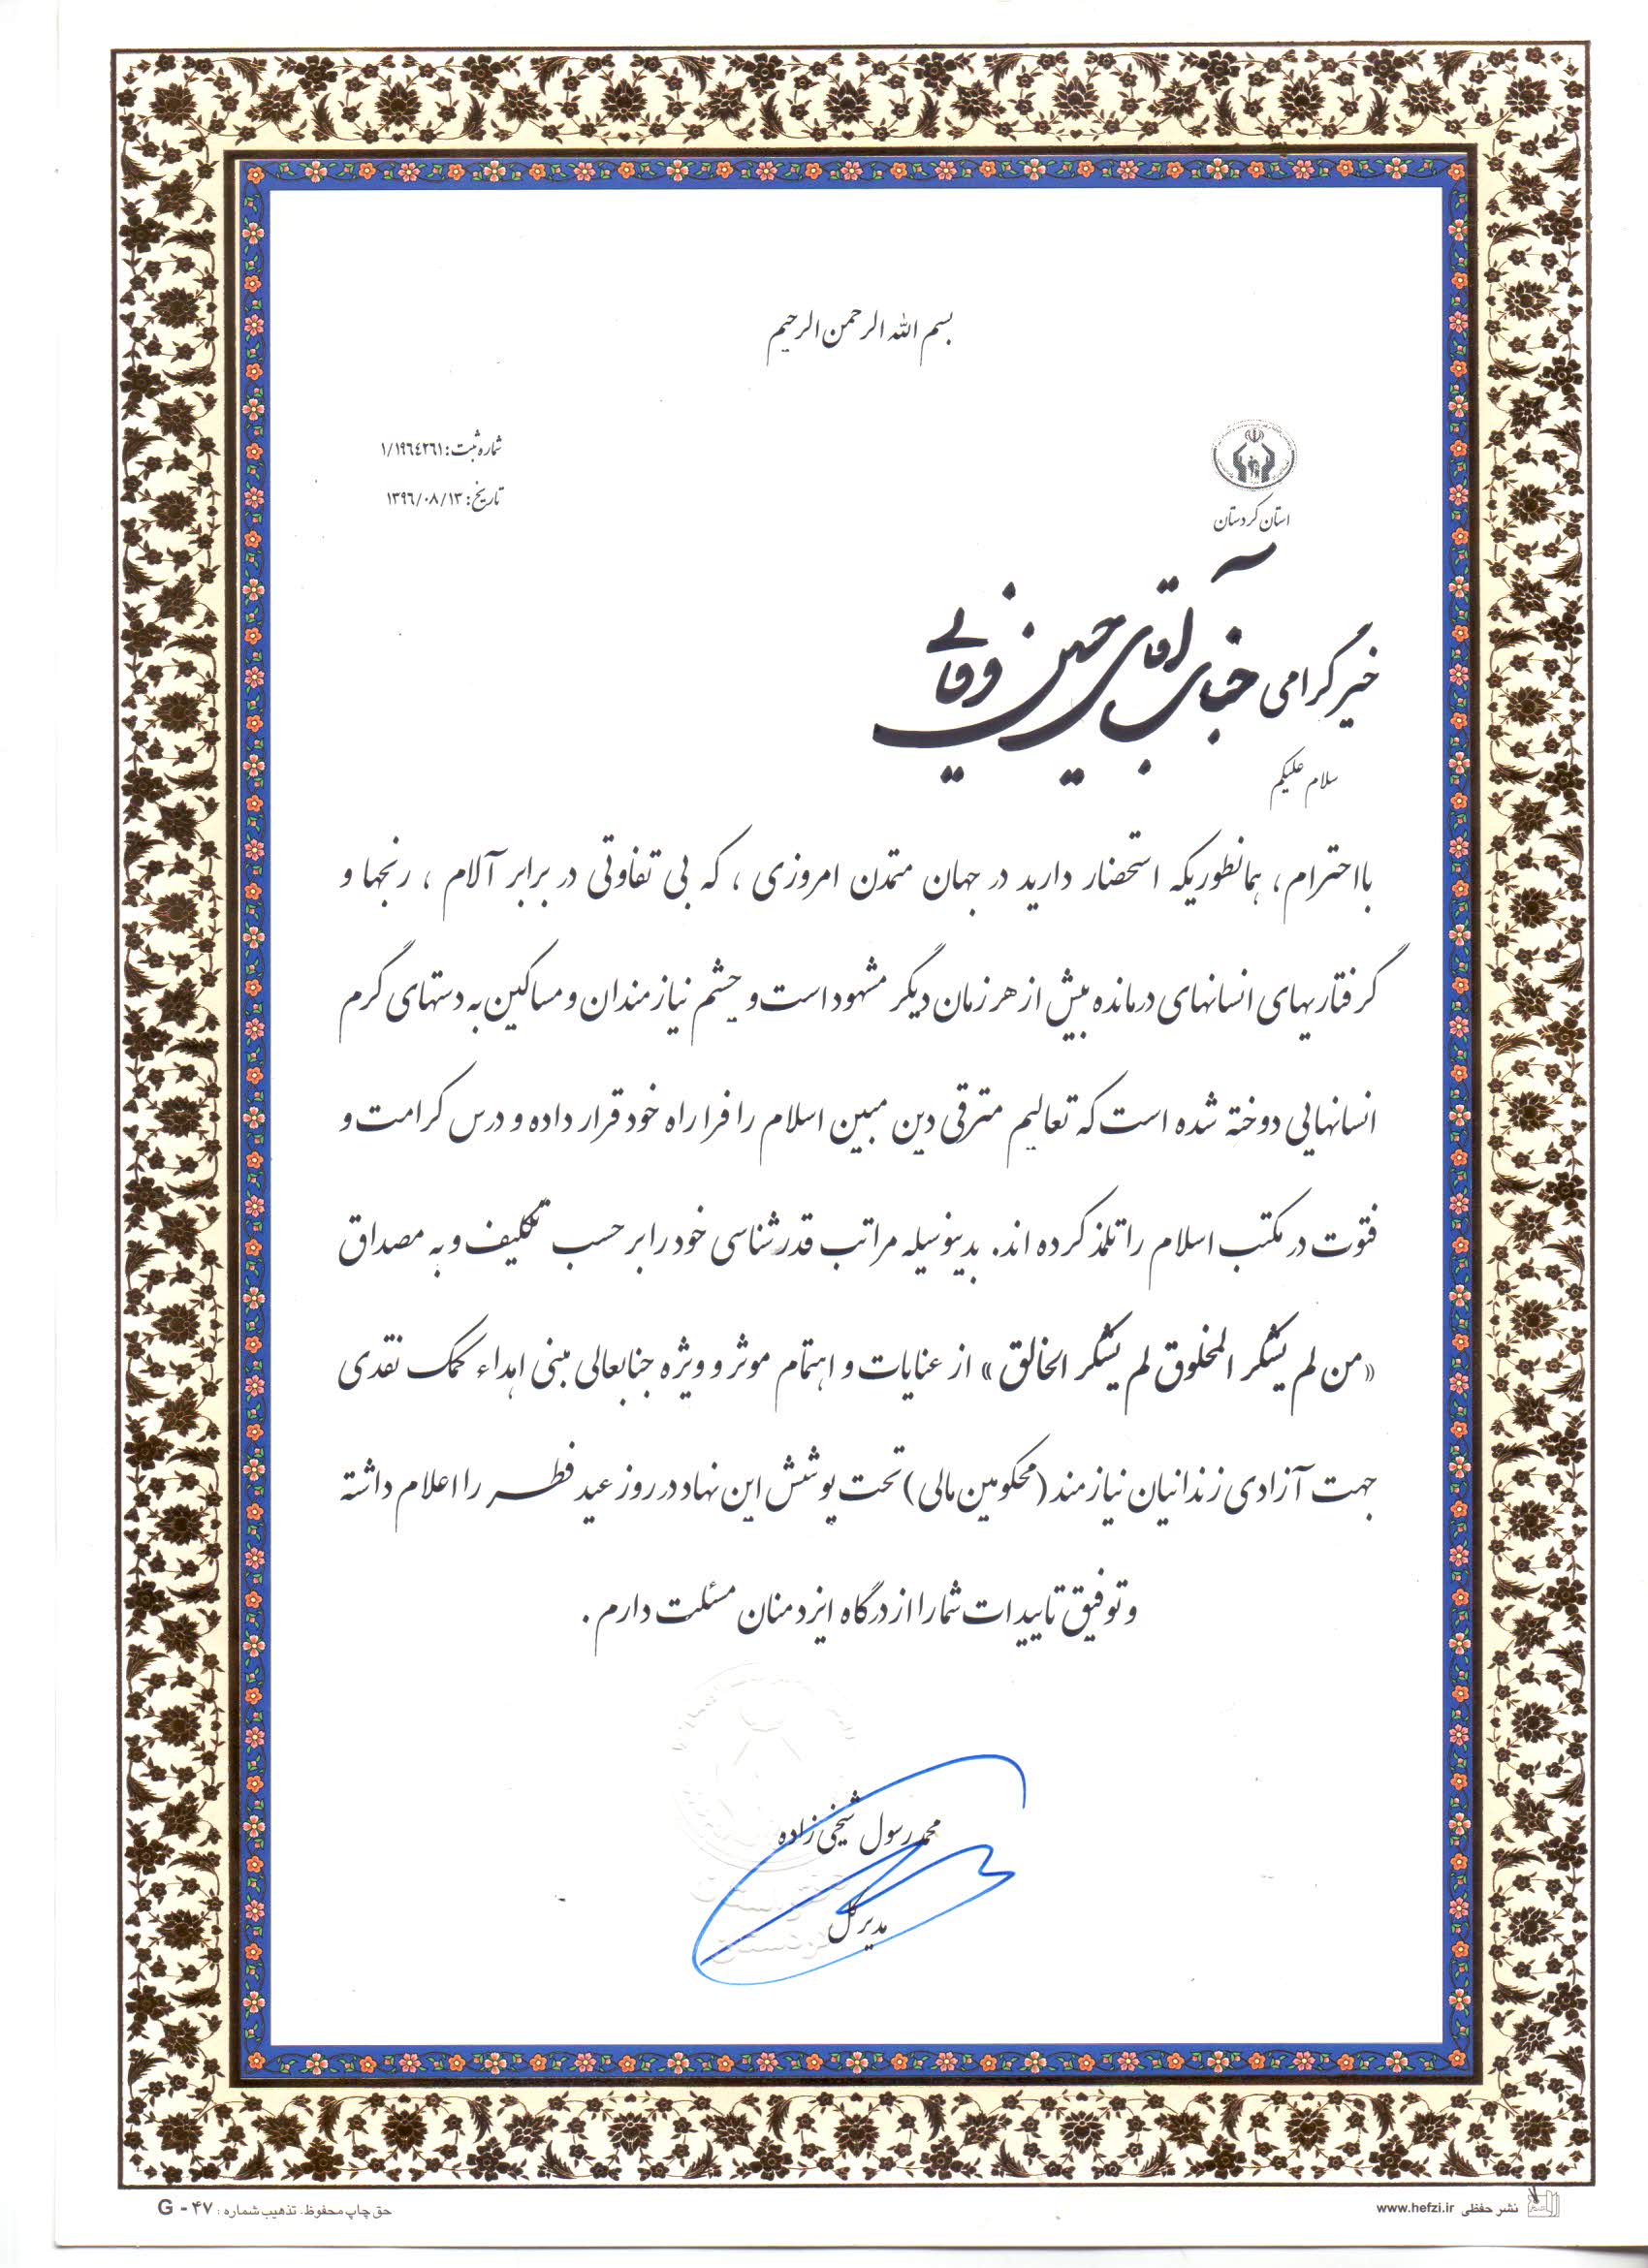 بسم الله الرحمن الرحیم
شماره ثبت: ١/١٩٦٤٢٦١
تاریخ: ١٣٩٦/٠٨/١٣
استان کردستان
خیر گرامی جناب آقای حسین وفایی
سلام علیکم
بااحترام، همانطوریکه استحضار دارید در جهان متمدن امروزی ، که بی تفاوتی در برابر آلام ، رنجها و
گرفتاریهای انسانهای درمانده بیش از هر زمان دیگر مشهود است و چشم نیازمندان و مساکین به دستهای گرم
انسانهایی دوخته شده است که تعالیم مترقی دین مبین اسلام را فرا راه خود قرار داده و درس کرامت و
فتوت در مکتب اسلام را تلمذ کرده اند. بدینوسیله مراتب قدرشناسی خود را بر حسب تکلیف و به مصداق
«من لم یشکر المخلوق لم یشکر الخالق» از عنایات و اهتمام موثر و ویژه جنابعالی مبنی اهداء کمک نقدی
جهت آزادی زندانیان نیازمند (محکومین مالی) تحت پوشش این نهاد در روز عید فطر را اعلام داشته
و توفیق تاییدات شما را از درگاه ایزد منان مسئلت دارم .
محمد رسول شیخی زاده
مدیر کل
حق چاپ محفوظ. تذهیب شماره : G - ۴۷
نشر حفظی www.hefzi.ir